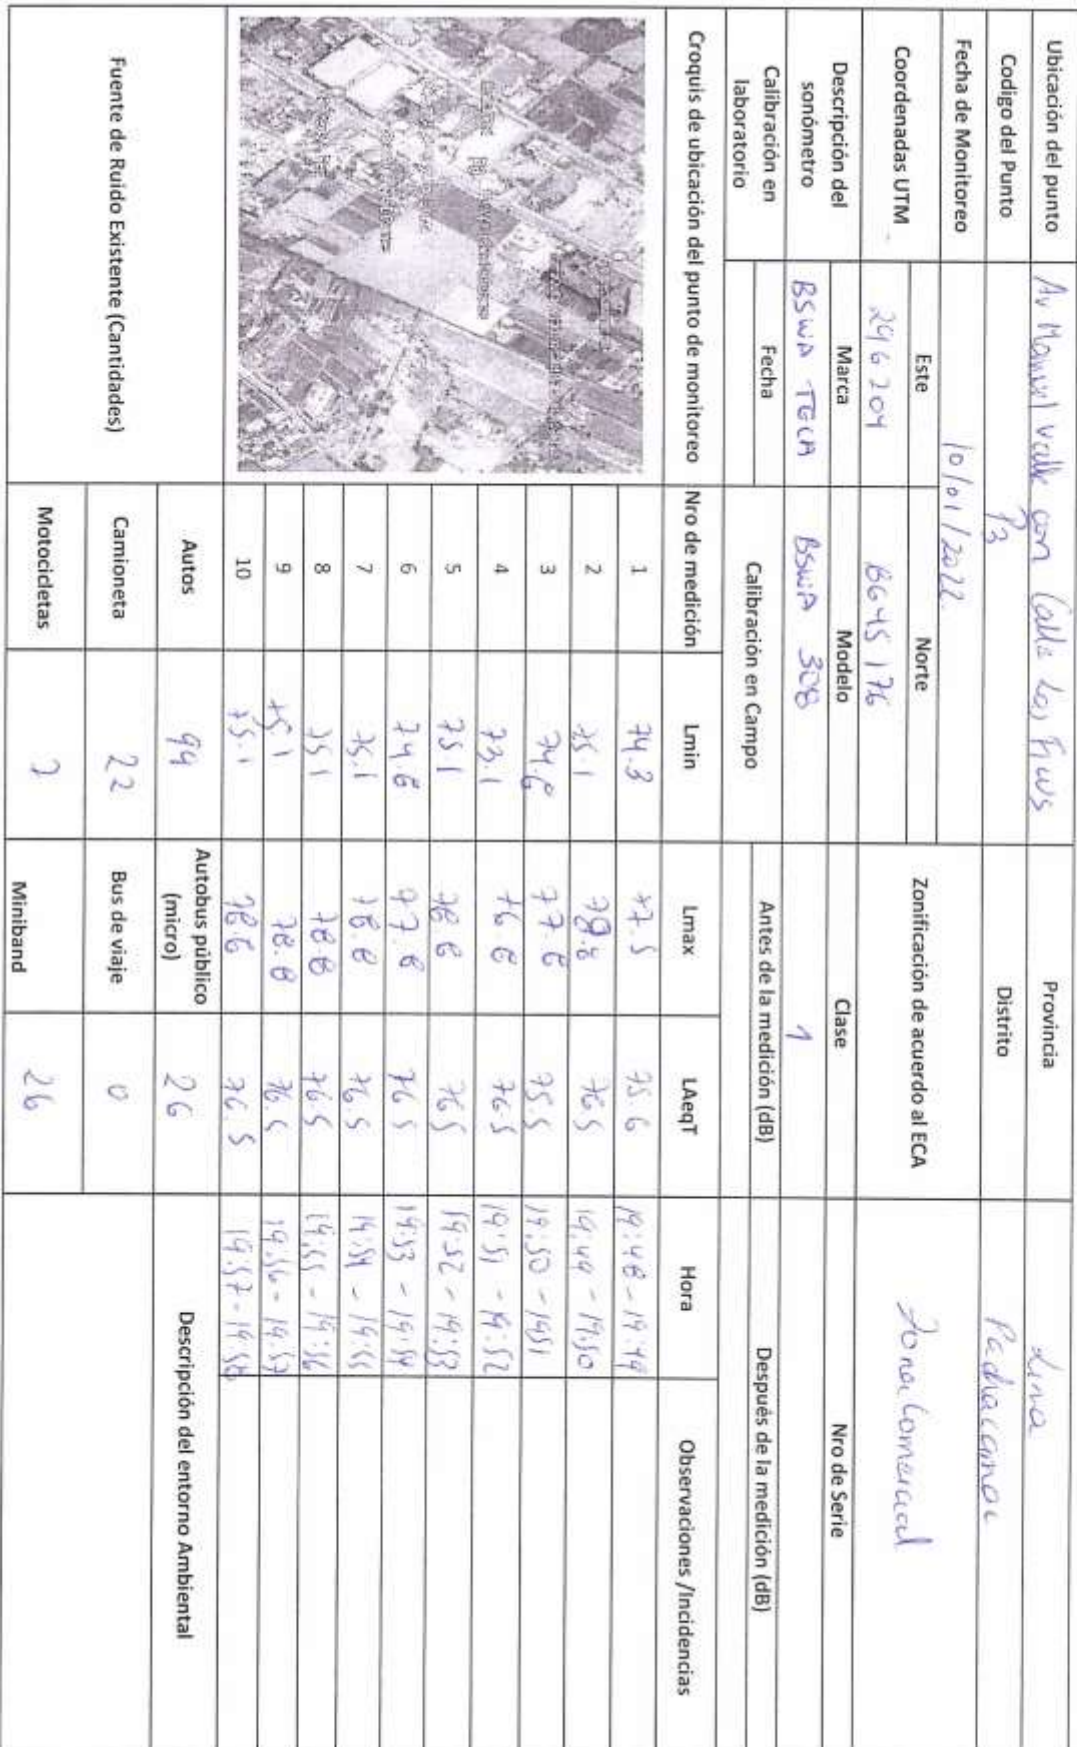 Ubicación del punto Av Manuel Valle con Calle Los Provincia Lima
Codigo del Punto P3 Distrito Pachacamac
Fecha de Monitoreo 10/01/2022
Coordenadas UTM Este Norte Zonificación de acuerdo al ECA Zona Comercial
296204 8645176
Descripción del sonómetro Marca Modelo Clase Nro de Serie
BSWA TECH BSWA 308 1
Calibración en laboratorio Fecha Calibración en Campo Antes de la medición (dB) Después de la medición (dB)
Croquis de ubicación del punto de monitoreo Nro de medición Lmin Lmax LAeqT Hora Observaciones /Incidencias
1 74.3 77.5 75.6 19:48 - 19:49
2 75.1 78.8 76.5 19:49 - 19:50
3 74.6 77.8 75.5 19:50 - 19:51
4 73.1 76.8 76.5 19:51 - 19:52
5 75.1 78.8 76.5 19:52 - 19:53
6 74.6 77.8 76.5 19:53 - 19:54
7 75.1 78.8 76.5 19:54 - 19:55
8 75.1 78.8 76.5 19:55 - 19:56
9 75.1 78.8 76.5 19:56 - 19:57
10 75.1 78.6 76.5 19:57 - 19:58
Fuente de Ruido Existente (Cantidades) Autos 99 Autobus público (micro) 26 Descripción del entorno Ambiental
Camioneta 22 Bus de viaje 0
Motocicletas Miniband 26